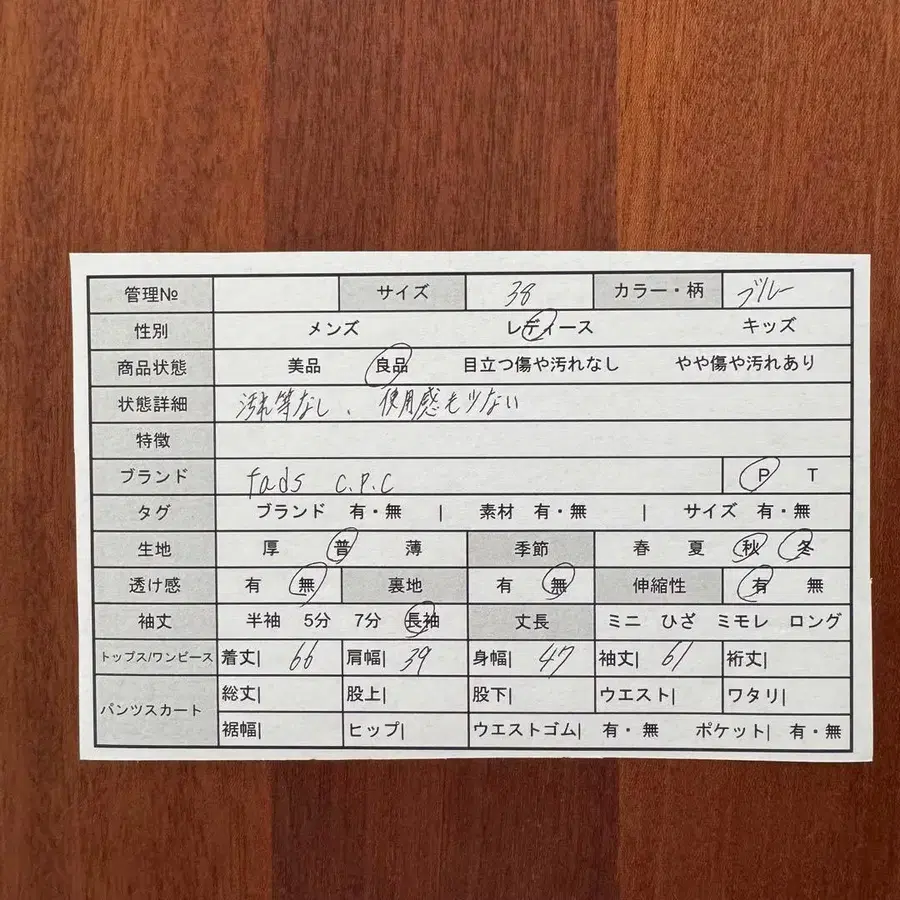 管理№ サイズ 38 カラー・柄 ブルー
性別 メンズ レディース キッズ
商品状態 美品 良品 目立つ傷や汚れなし やや傷や汚れあり
状態詳細 汚れ等なし、使用感も少ない
特徴
ブランド fads c.p.c P T
タグ ブランド 有・無 | 素材 有・無 | サイズ 有・無
生地 厚 普 薄 季節 春 夏 秋 冬
透け感 有 無 裏地 有 無 伸縮性 有 無
袖丈 半袖 5分 7分 長袖 丈長 ミニ ひざ ミモレ ロング
トップス/ワンピース 着丈| 66 肩幅| 39 身幅| 47 袖丈| 61 裄丈|
パンツスカート 総丈| 股上| 股下| ウエスト| ワタリ|
裾幅| ヒップ| ウエストゴム| 有・無 ポケット| 有・無